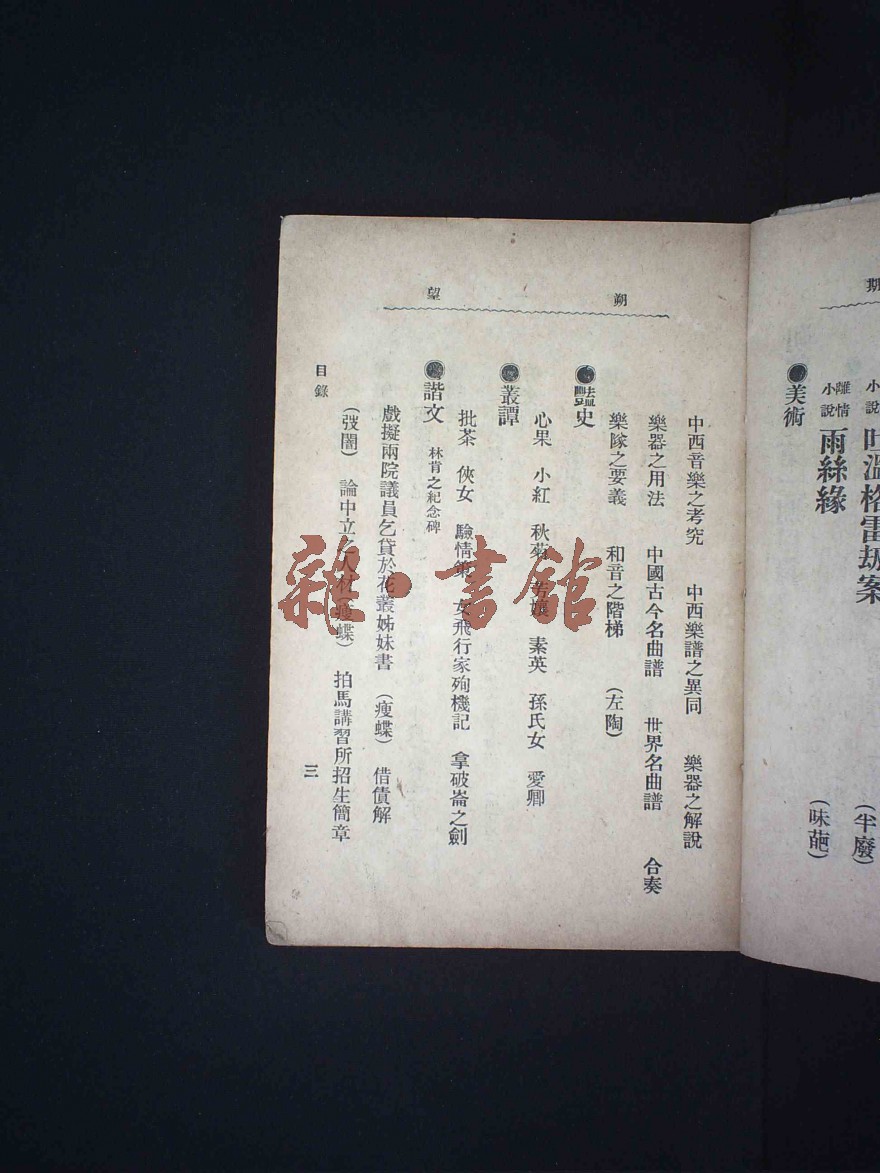 期
小說 吐溫格雷刼案 (半廢)
離情小說 雨絲緣 (味葩)
●美術
朔望
中西音樂之考究 中西樂譜之異同 樂器之解說
樂器之用法 中國古今名曲譜 世界名曲譜 合奏
樂隊之要義 和音之階梯 (左陶)
●豔史
心果 小紅 秋菊 素英 孫氏女 愛卿
●叢譚
批茶 俠女 驗情 女飛行家殉機記 拿破崙之劍
●諧文 林肯之紀念碑
戲擬兩院議員乞貸於花叢姊妹書 (瘦蝶) 借債解
(弢闇) 論中立之人材 (瘦蝶) 拍馬講習所招生簡章
目錄 三
雜·書館